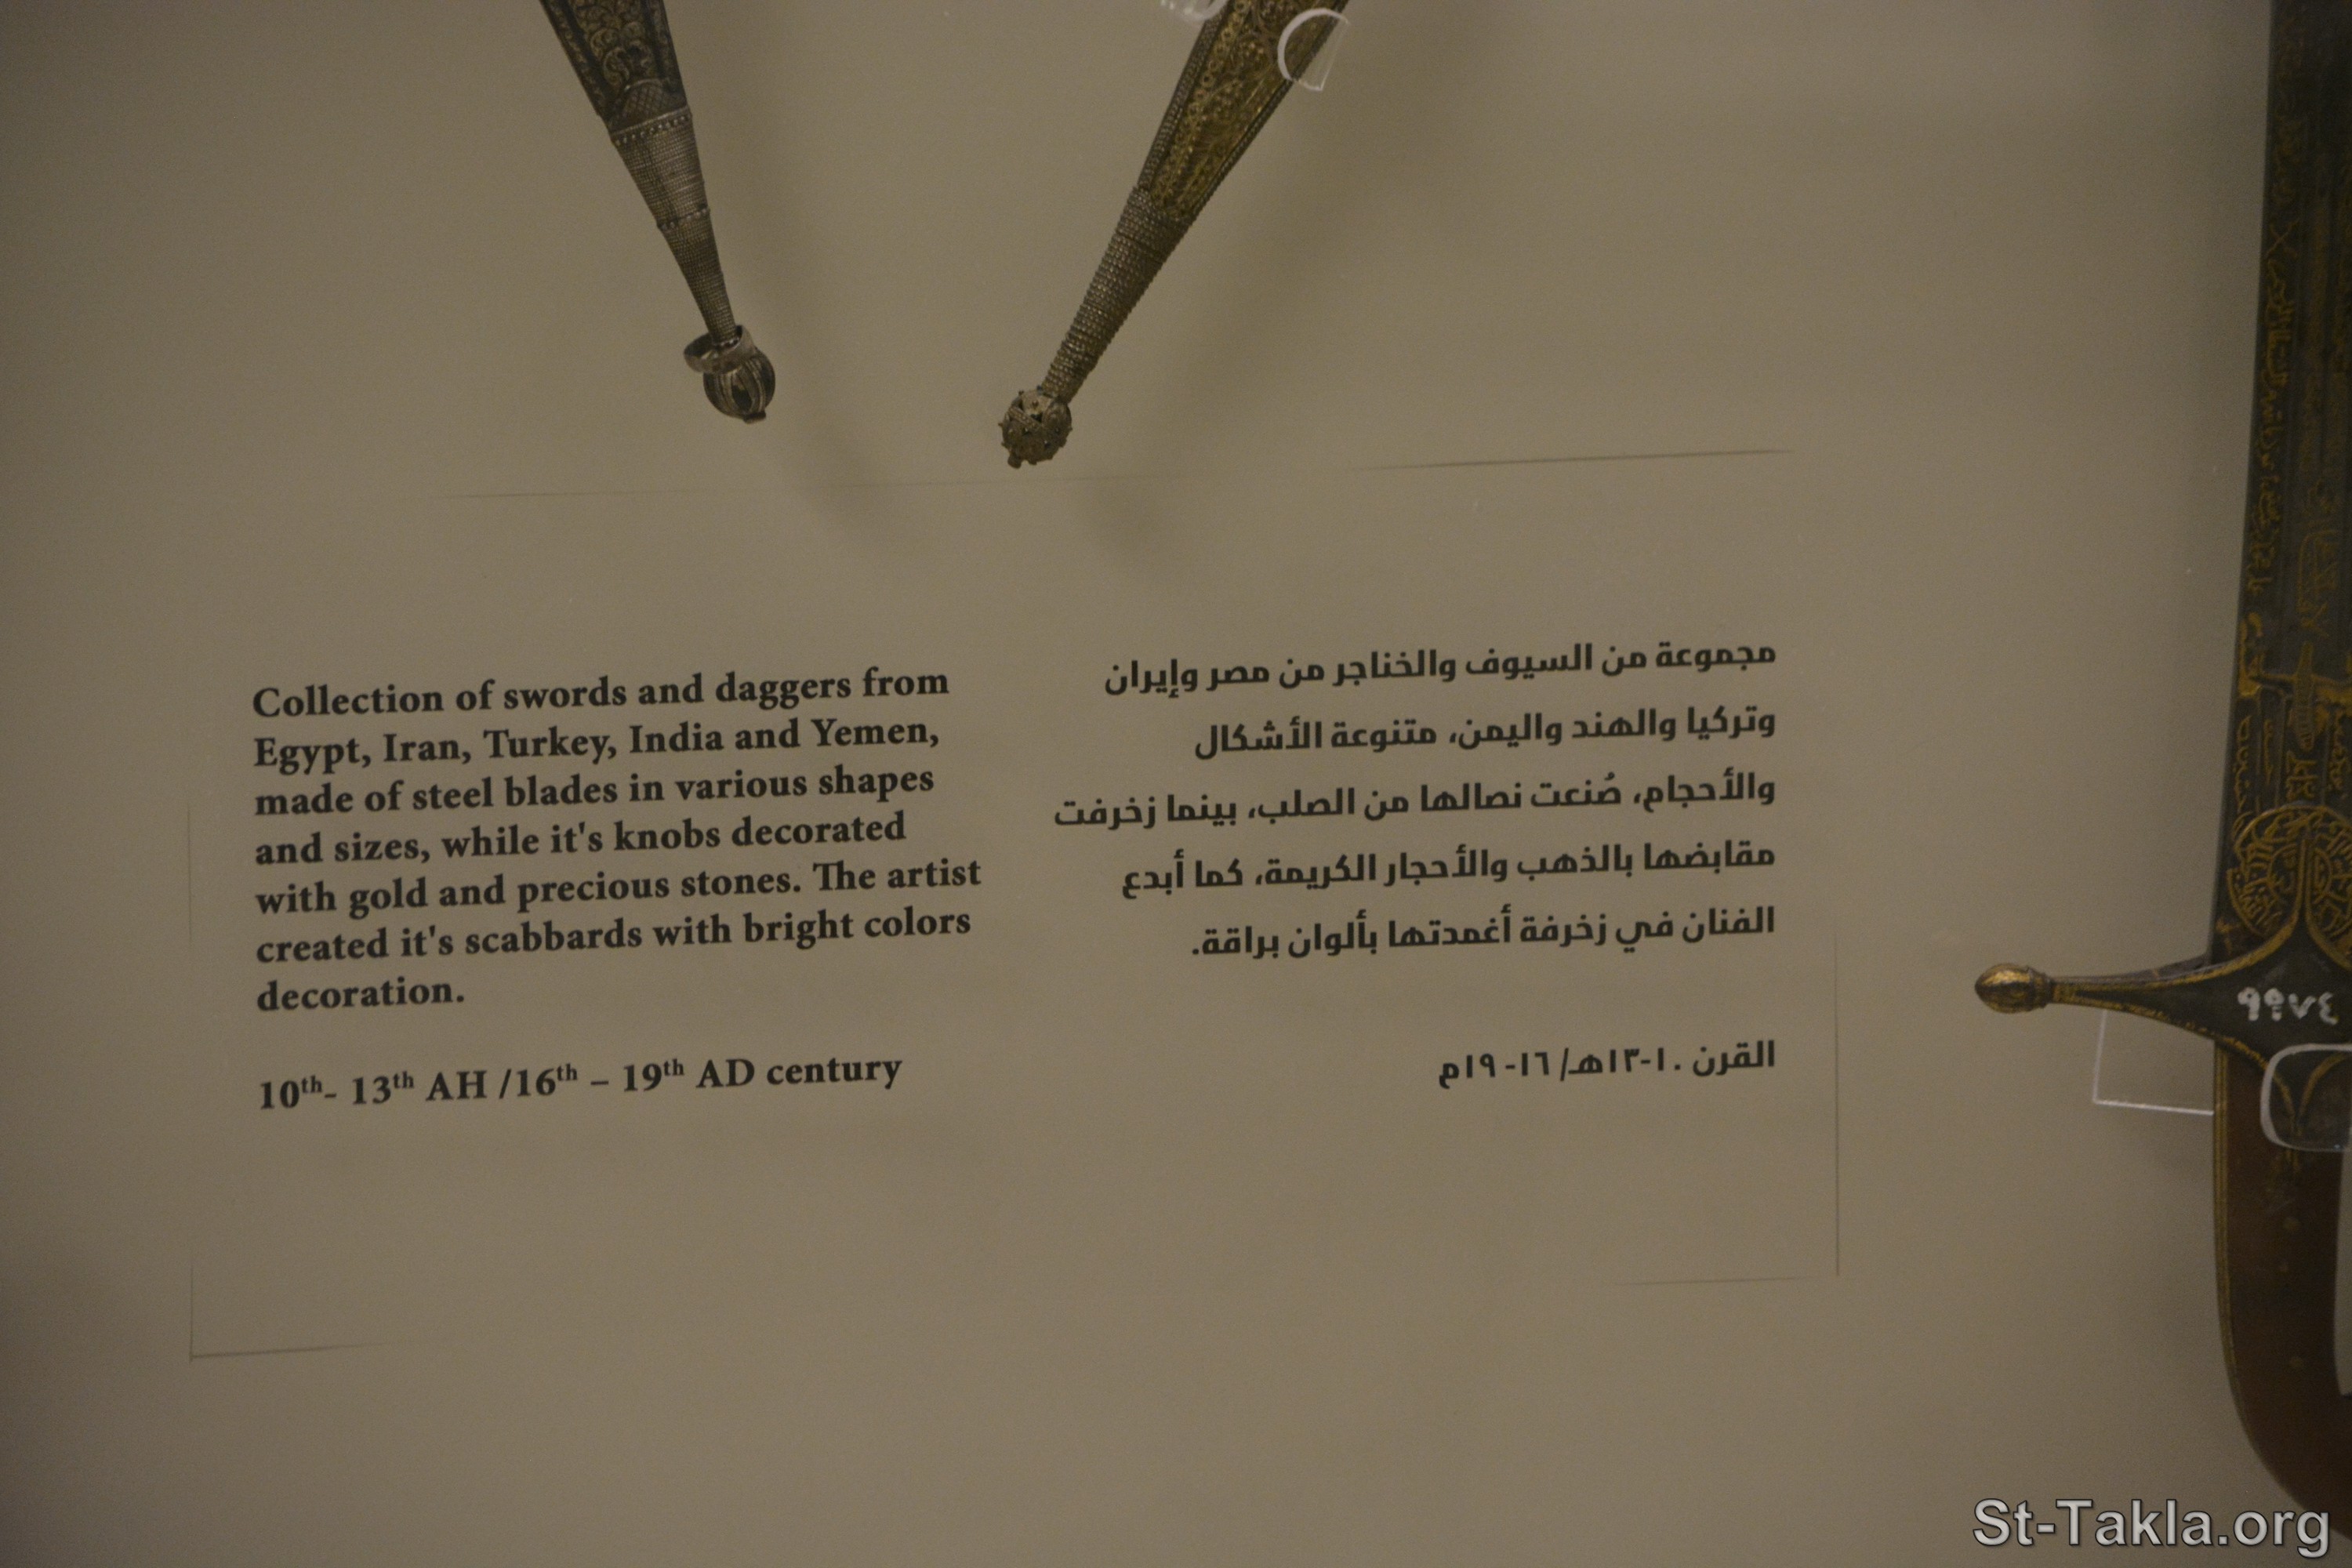 Collection of swords and daggers from
Egypt, Iran, Turkey, India and Yemen,
made of steel blades in various shapes
and sizes, while it's knobs decorated
with gold and precious stones. The artist
created it's scabbards with bright colors
decoration.
10th- 13th AH /16th – 19th AD century
مجموعة من السيوف والخناجر من مصر وإيران
وتركيا والهند واليمن، متنوعة الأشكال
والأحجام، صُنعت نصالها من الصلب، بينما زخرفت
مقابضها بالذهب والأحجار الكريمة، كما أبدع
الفنان في زخرفة أغمدتها بألوان براقة.
القرن ١٠-١٣هـ/ ١٦-١٩م
St-Takla.org